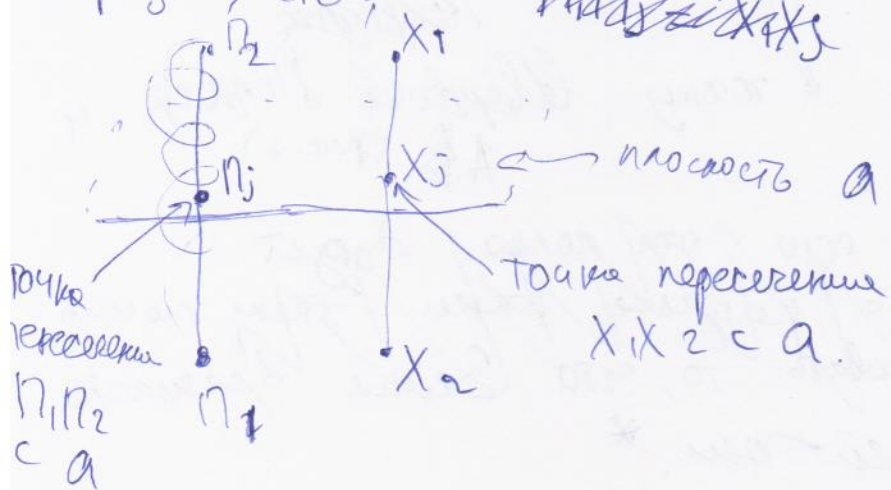 П2 X1
Пj Xj плоскость a
точка
пересечения
П1П2
с a
точка пересечения
X1X2 с a.
П1 X2